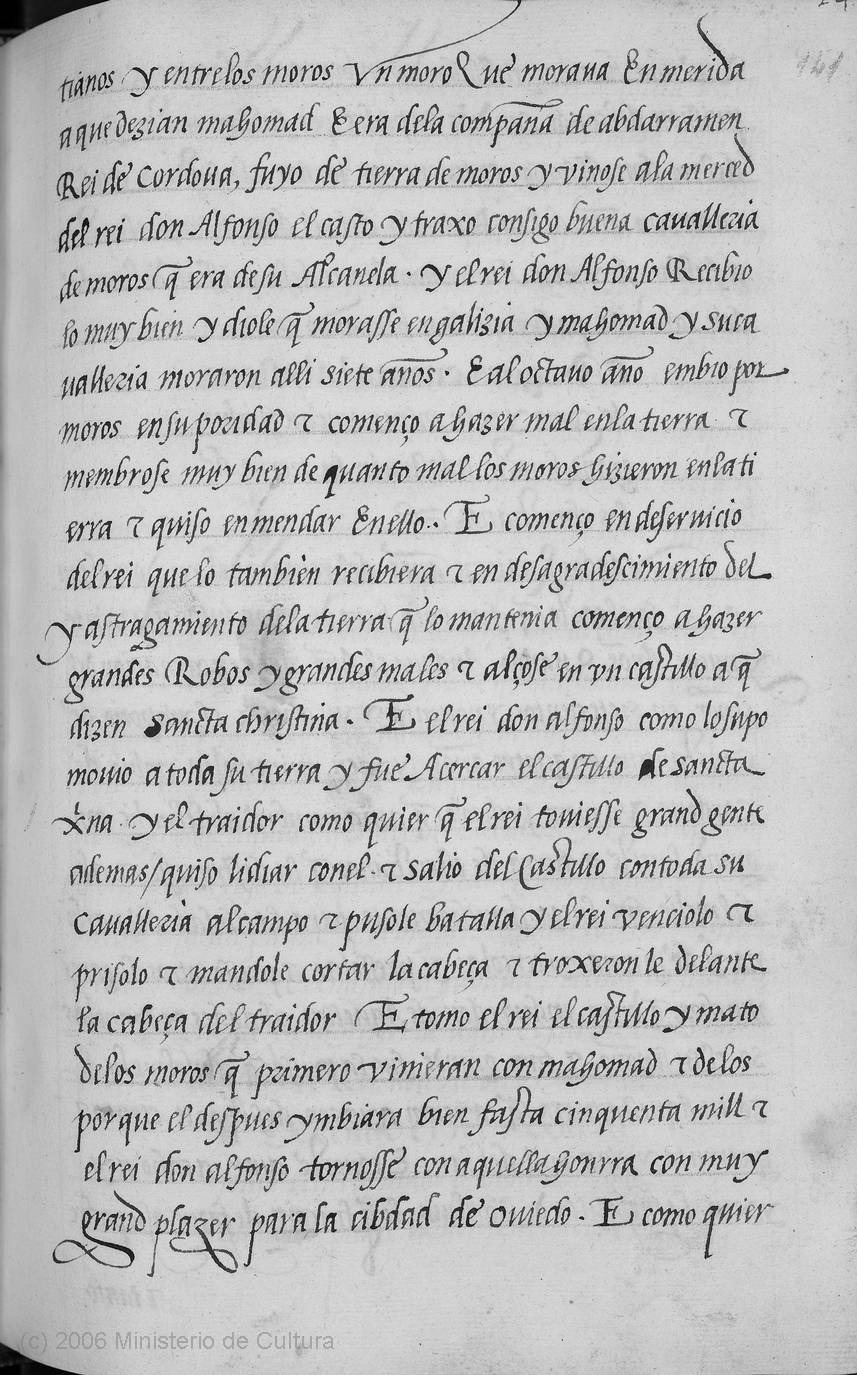 141
tianos y entrelos moros vn moro Que moraua En merida
a que dezian mahomad E era dela compan̄a de abdarramen
Rei de Cordoua, fuyo de tierra de moros y vinose ala merced
del rei don Alfonso el casto y traxo consigo buena cavalleria
de moros q̃ era de su Alcanela · y el rei don Alfonso Recibio
lo muy bien y diole q̃ morasse en galizia y mahomad y su ca
ualleria moraron alli siete an̄os · E al octauo an̄o embio por
moros en su poridad ⁊ començo a hazer mal en la tierra ⁊
membrose muy bien de quanto mal los moros hizieron en la ti
erra ⁊ quiso enmendar En ello · E començo en deservicio
del rei que lo tambien recibiera ⁊ en desagradescimiento del
y astragamiento dela tierra q̃ lo mantenia començo a hazer
grandes Robos y grandes males ⁊ alçose en vn castillo a q̃
dizen Sancta christina · E el rei don alfonso como lo supo
mouio a toda su tierra y fue Acercar el castillo de sancta
x̃na · y el traidor como quier q̃ el rei touiesse grand gente
ademas / quiso lidiar conel · ⁊ salio del Castillo con toda su
Cauallerià al campo ⁊ pusole batalla y el rei venciolo ⁊
prisolo ⁊ mandole cortar la cabeça ⁊ troxeron le delante
la cabeça del traidor E tomo el rei el castillo y mato
delos moros q̃ primero vinieran con mahomad ⁊ de los
por que el despues ymbiara bien fasta cinquenta mill ⁊
el rei don alfonso tornosse con aquella honrra con muy
grand plazer para la cibdad de oviedo · E como quier
(c) 2006 Ministerio de Cultura